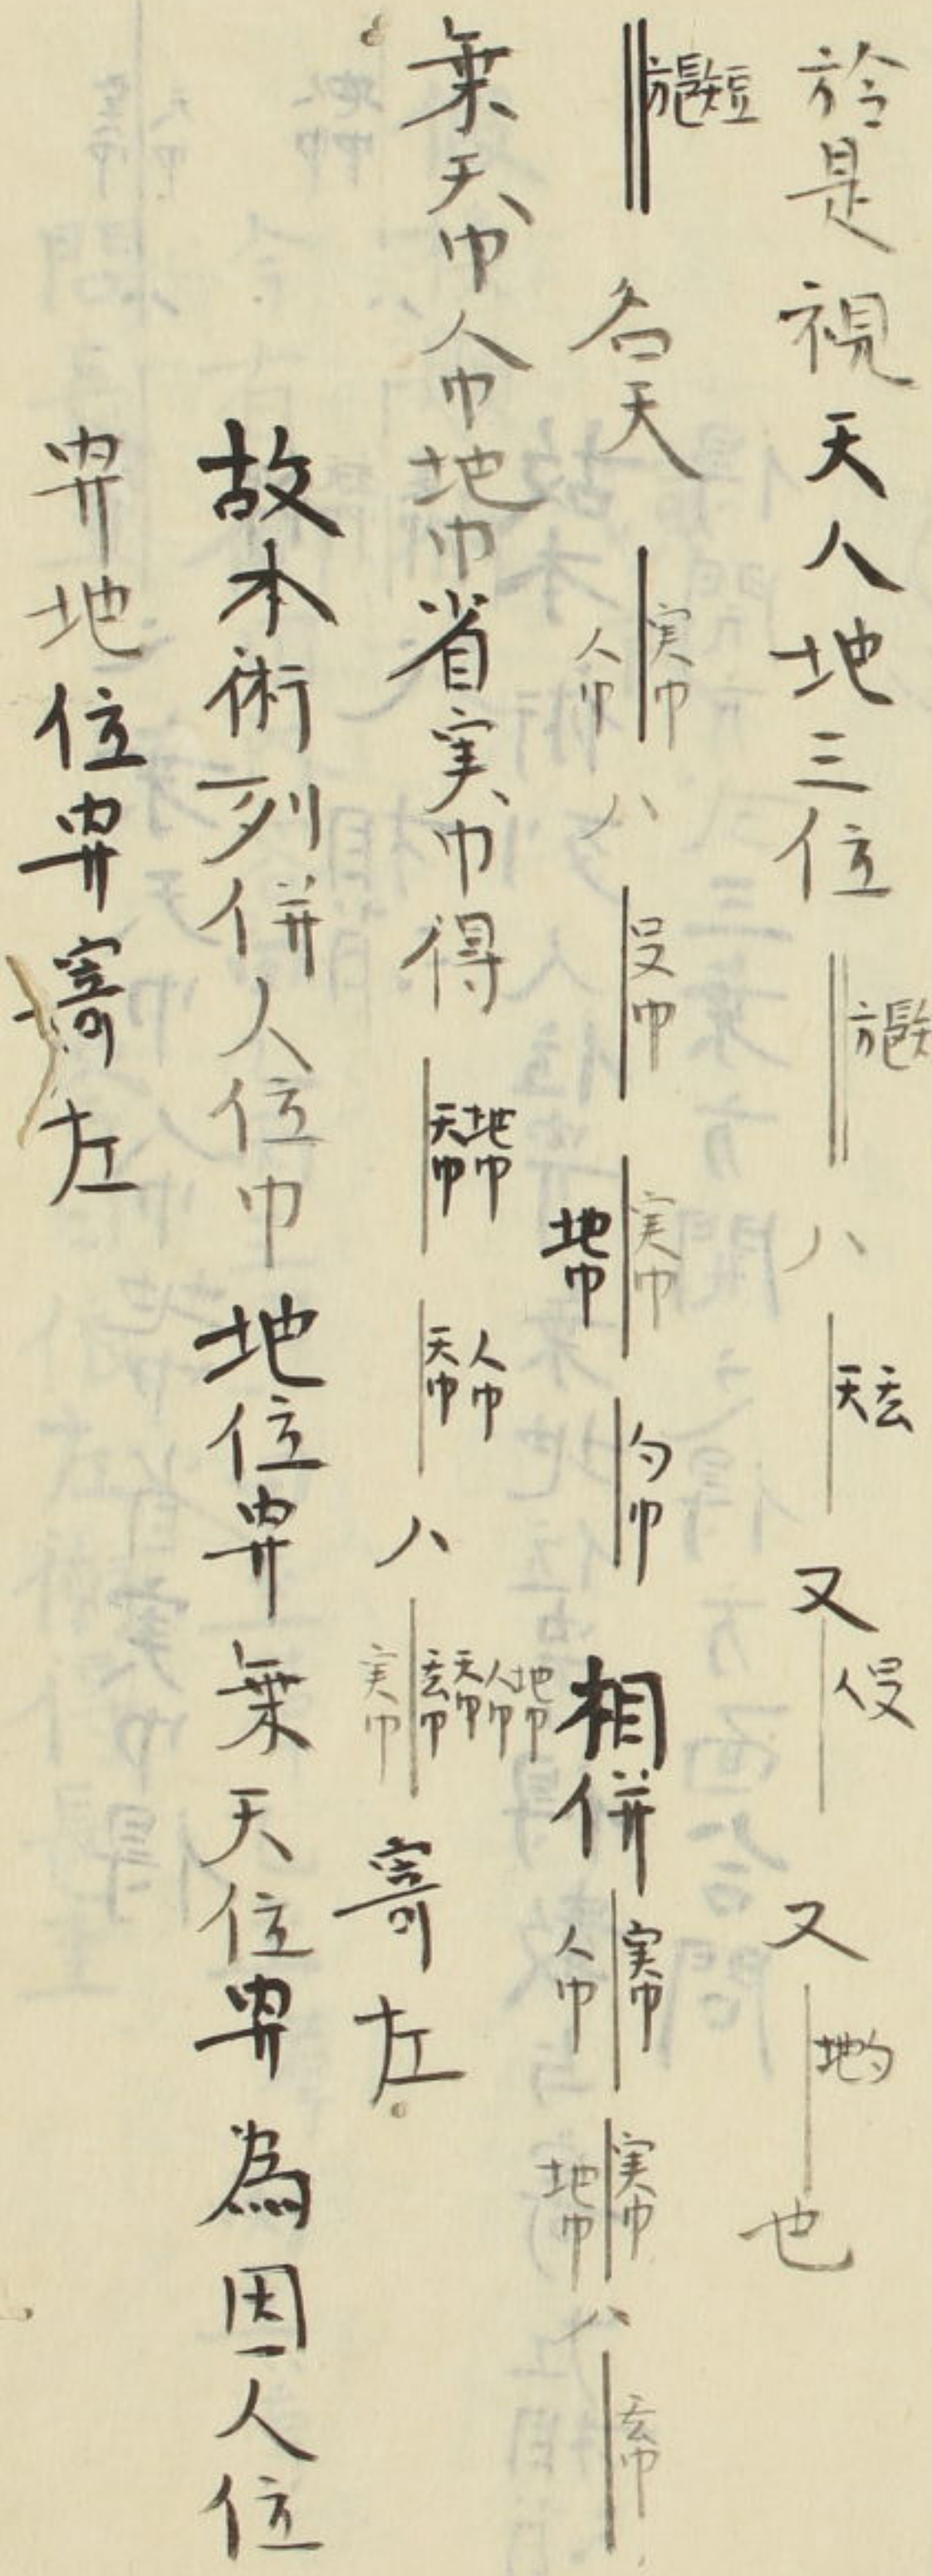 於是視天人地三位 方長 ハ 天玄 又 人殳 又 地勺 也
方長短 名天 人巾 実巾 ハ 殳巾 地巾 実巾 勺巾 相併 人巾 実巾 地巾 実巾 ハ 玄巾
乗天巾人巾地巾省実巾得 天巾地巾 天巾人巾 ハ 実巾 玄巾天巾人巾地巾 寄左
故本術列併人位巾地位 乗天位 為因人位
地位 寄左